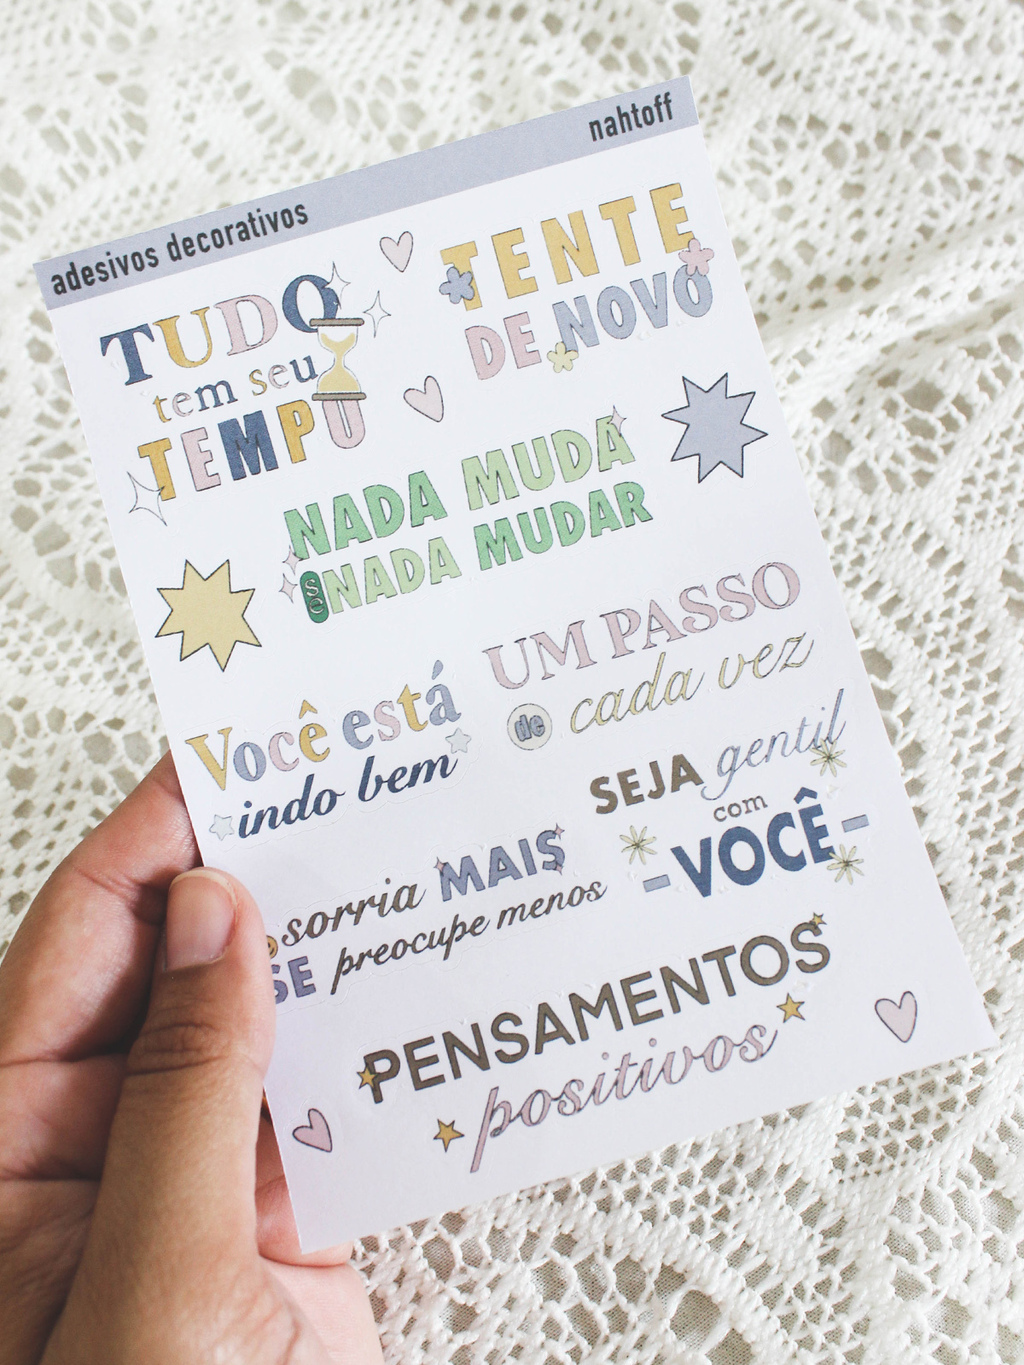 adesivos decorativos
nahtoff
TUDO
tem seu
TEMPO
TENTE
DE NOVO
NADA MUDA
se NADA MUDAR
UM PASSO
de cada vez
Você está
indo bem
SEJA gentil
com
- VOCÊ -
sorria MAIS
SE preocupe menos
PENSAMENTOS
positivos